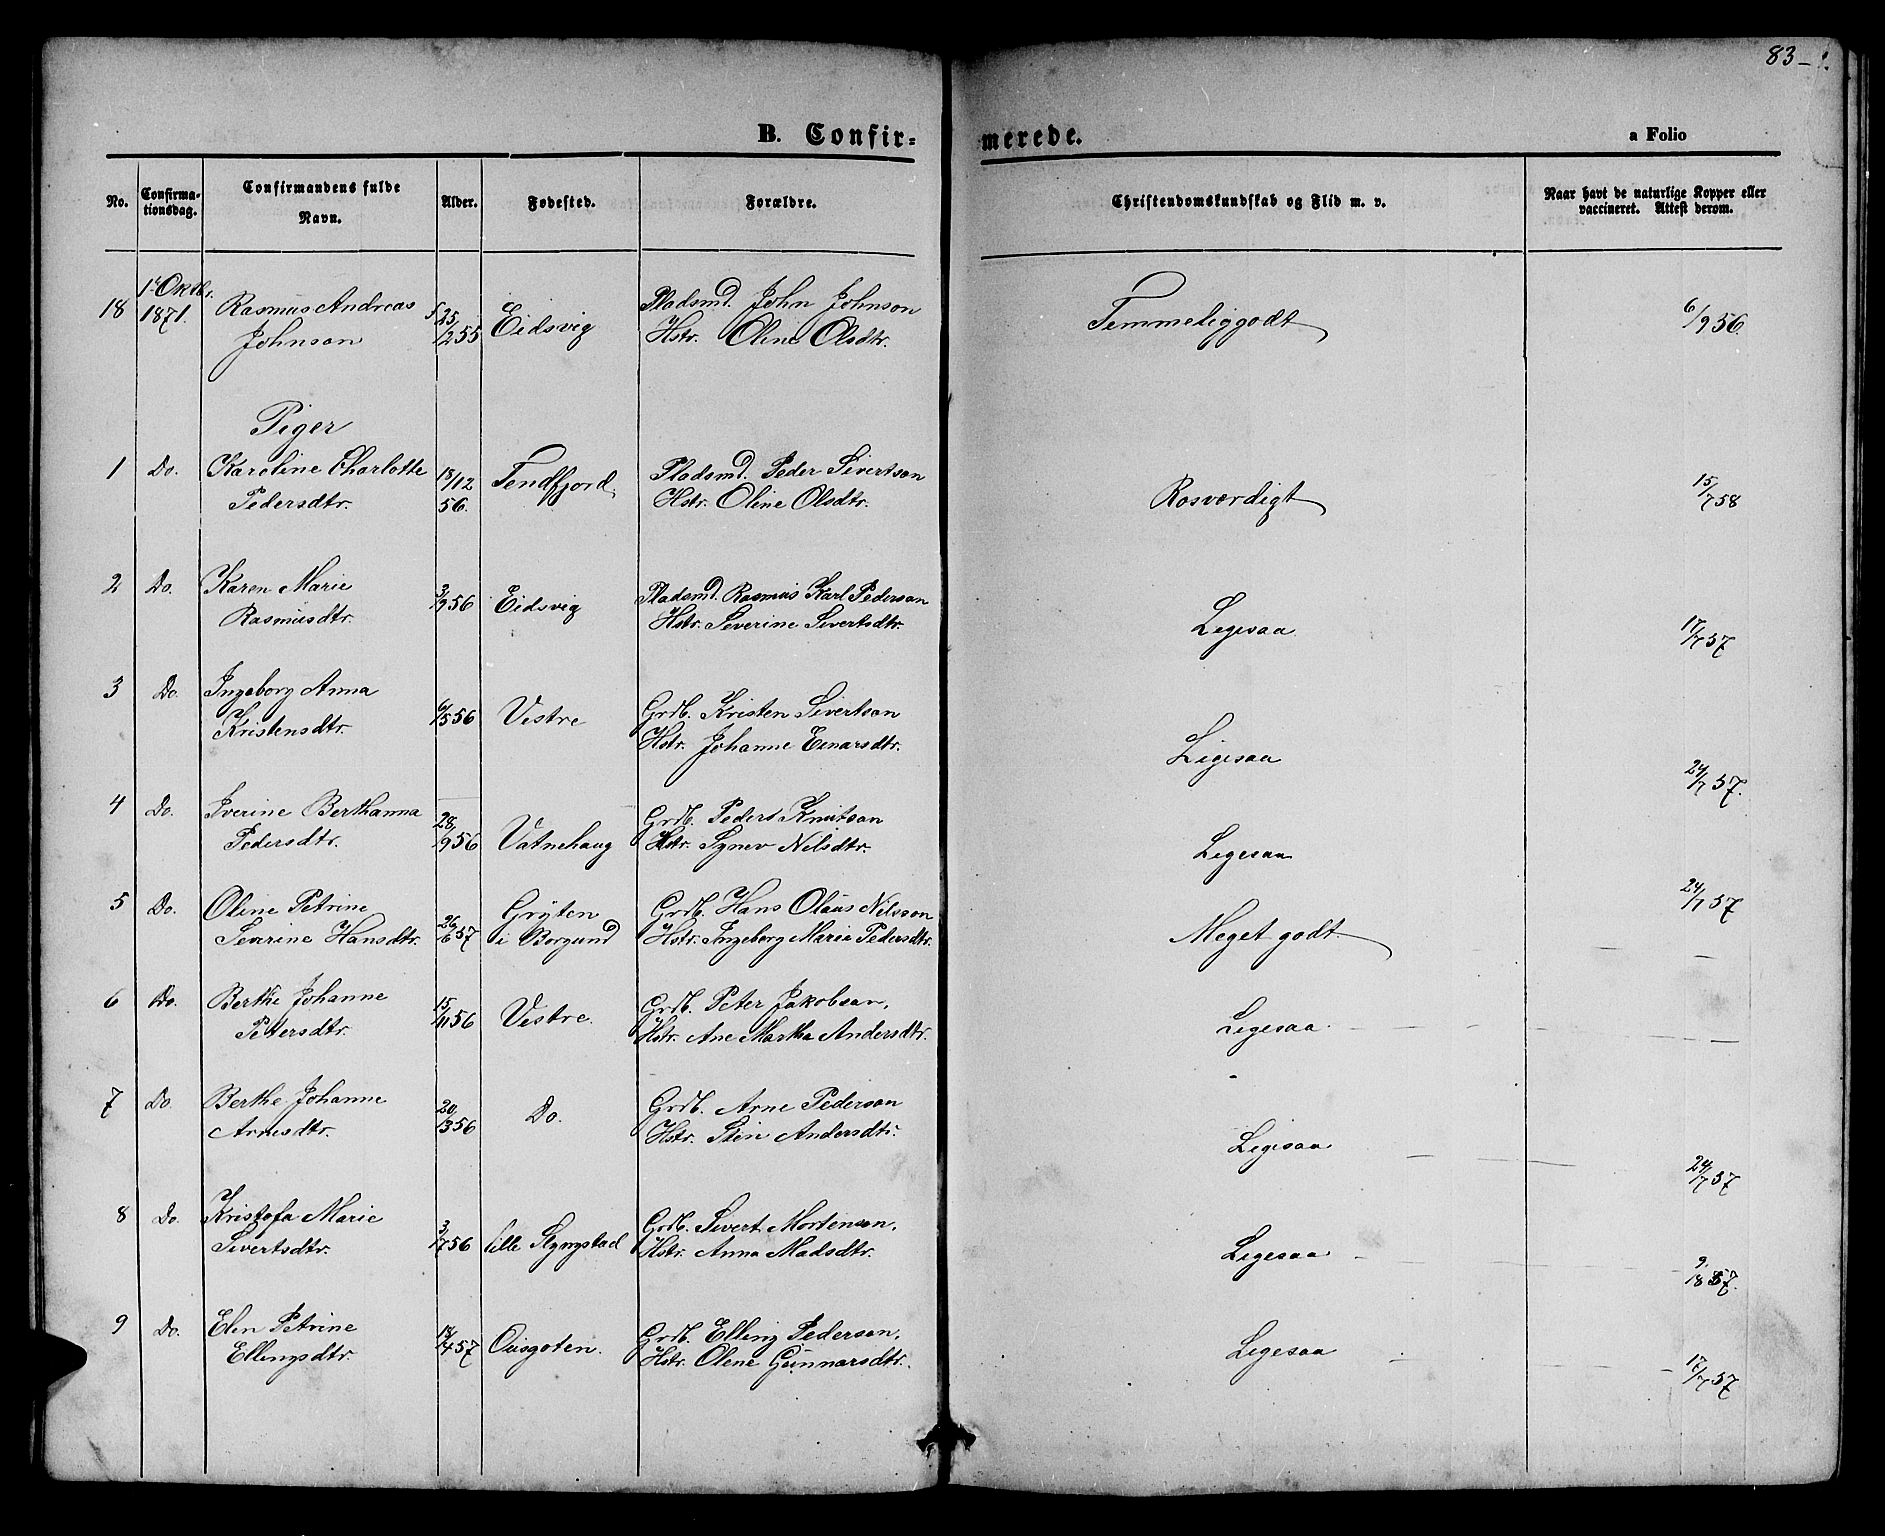 83
B. Confir=
merede.
a Folio
No.
Confirma-
tionsdag.
Confirmandens fulde
Navn.
Alder.
Fødested.
Forældre.
Christendomskundskab og Flid m. v.
Naar havt de naturlige Kopper eller
vaccineret. Attest derom.
18 1 Oktbr. 1871. Rasmus Andreas Johnson 25/12 55 Eidsvig Pladsmd. John Johnson Hstr. Oline Olsdtr. Temmeliggodt 6/9 56.
Piger
1 Do. Karoline Charlotte Pedersdtr. 18/12 56. Tendfjord Pladsmd. Peder Sivertson Hstr. Oline Olsdtr. Rosværdigt 15/7 58
2 Do. Karen Marie Rasmusdtr. 3/9 56 Eidsvig Pladsmd. Rasmus Karl Pederson Hstr. Severine Sivertsdtr. Ligesaa 17/7 57
3 Do. Ingeborg Anna Kristensdtr. 6/5 56 Vestre Grdb. Kristen Sivertson Hstr. Johanne Einarsdtr. Ligesaa 24/7 57.
4 Do. Iverine Berthanna Pedersdtr. 28/9 56 Vatnehaug Grdb. Peder Knutson Hstr. Synev Nilsdtr. Ligesaa 24/7 57
5 Do. Oline Petrine Severine Hansdtr. 26/6 57 Gryten i Borgund Grdb. Hans Olaus Nilsson Hstr. Ingeborg Marie Pedersdtr. Meget godt.
6 Do. Berthe Johanne Petersdtr. 15/11 56 Vestre. Grdb. Peter Jakobson, Hstr. Ane Martha Andersdtr. Ligesaa
7 Do. Berthe Johanne Arnesdtr. 20/3 56 Do. Grdb. Arne Pederson Hstr. Sten Andersdtr. Ligesaa 24/7 57
8 Do. Kristofa Marie Sivertsdtr. 3/7 56 lille Slyngstad Grdb. Sivert Mortenson, Hstr. Anna Madsdtr. Ligesaa 9. 1857.
9 Do. Elen Petrine Ellingsdtr. 14/4 57 Grdb. Elling Pederson, Hstr. Olene Gunnarsdtr. Ligesaa 17/7 57